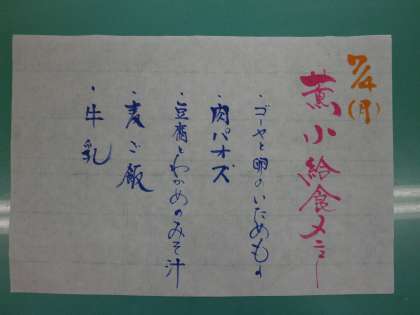 7/4(月)
薫小給食メニュー
・ゴーヤと卵のいためもの
・肉パオズ
・豆腐とわかめのみそ汁
・麦ご飯
・牛乳